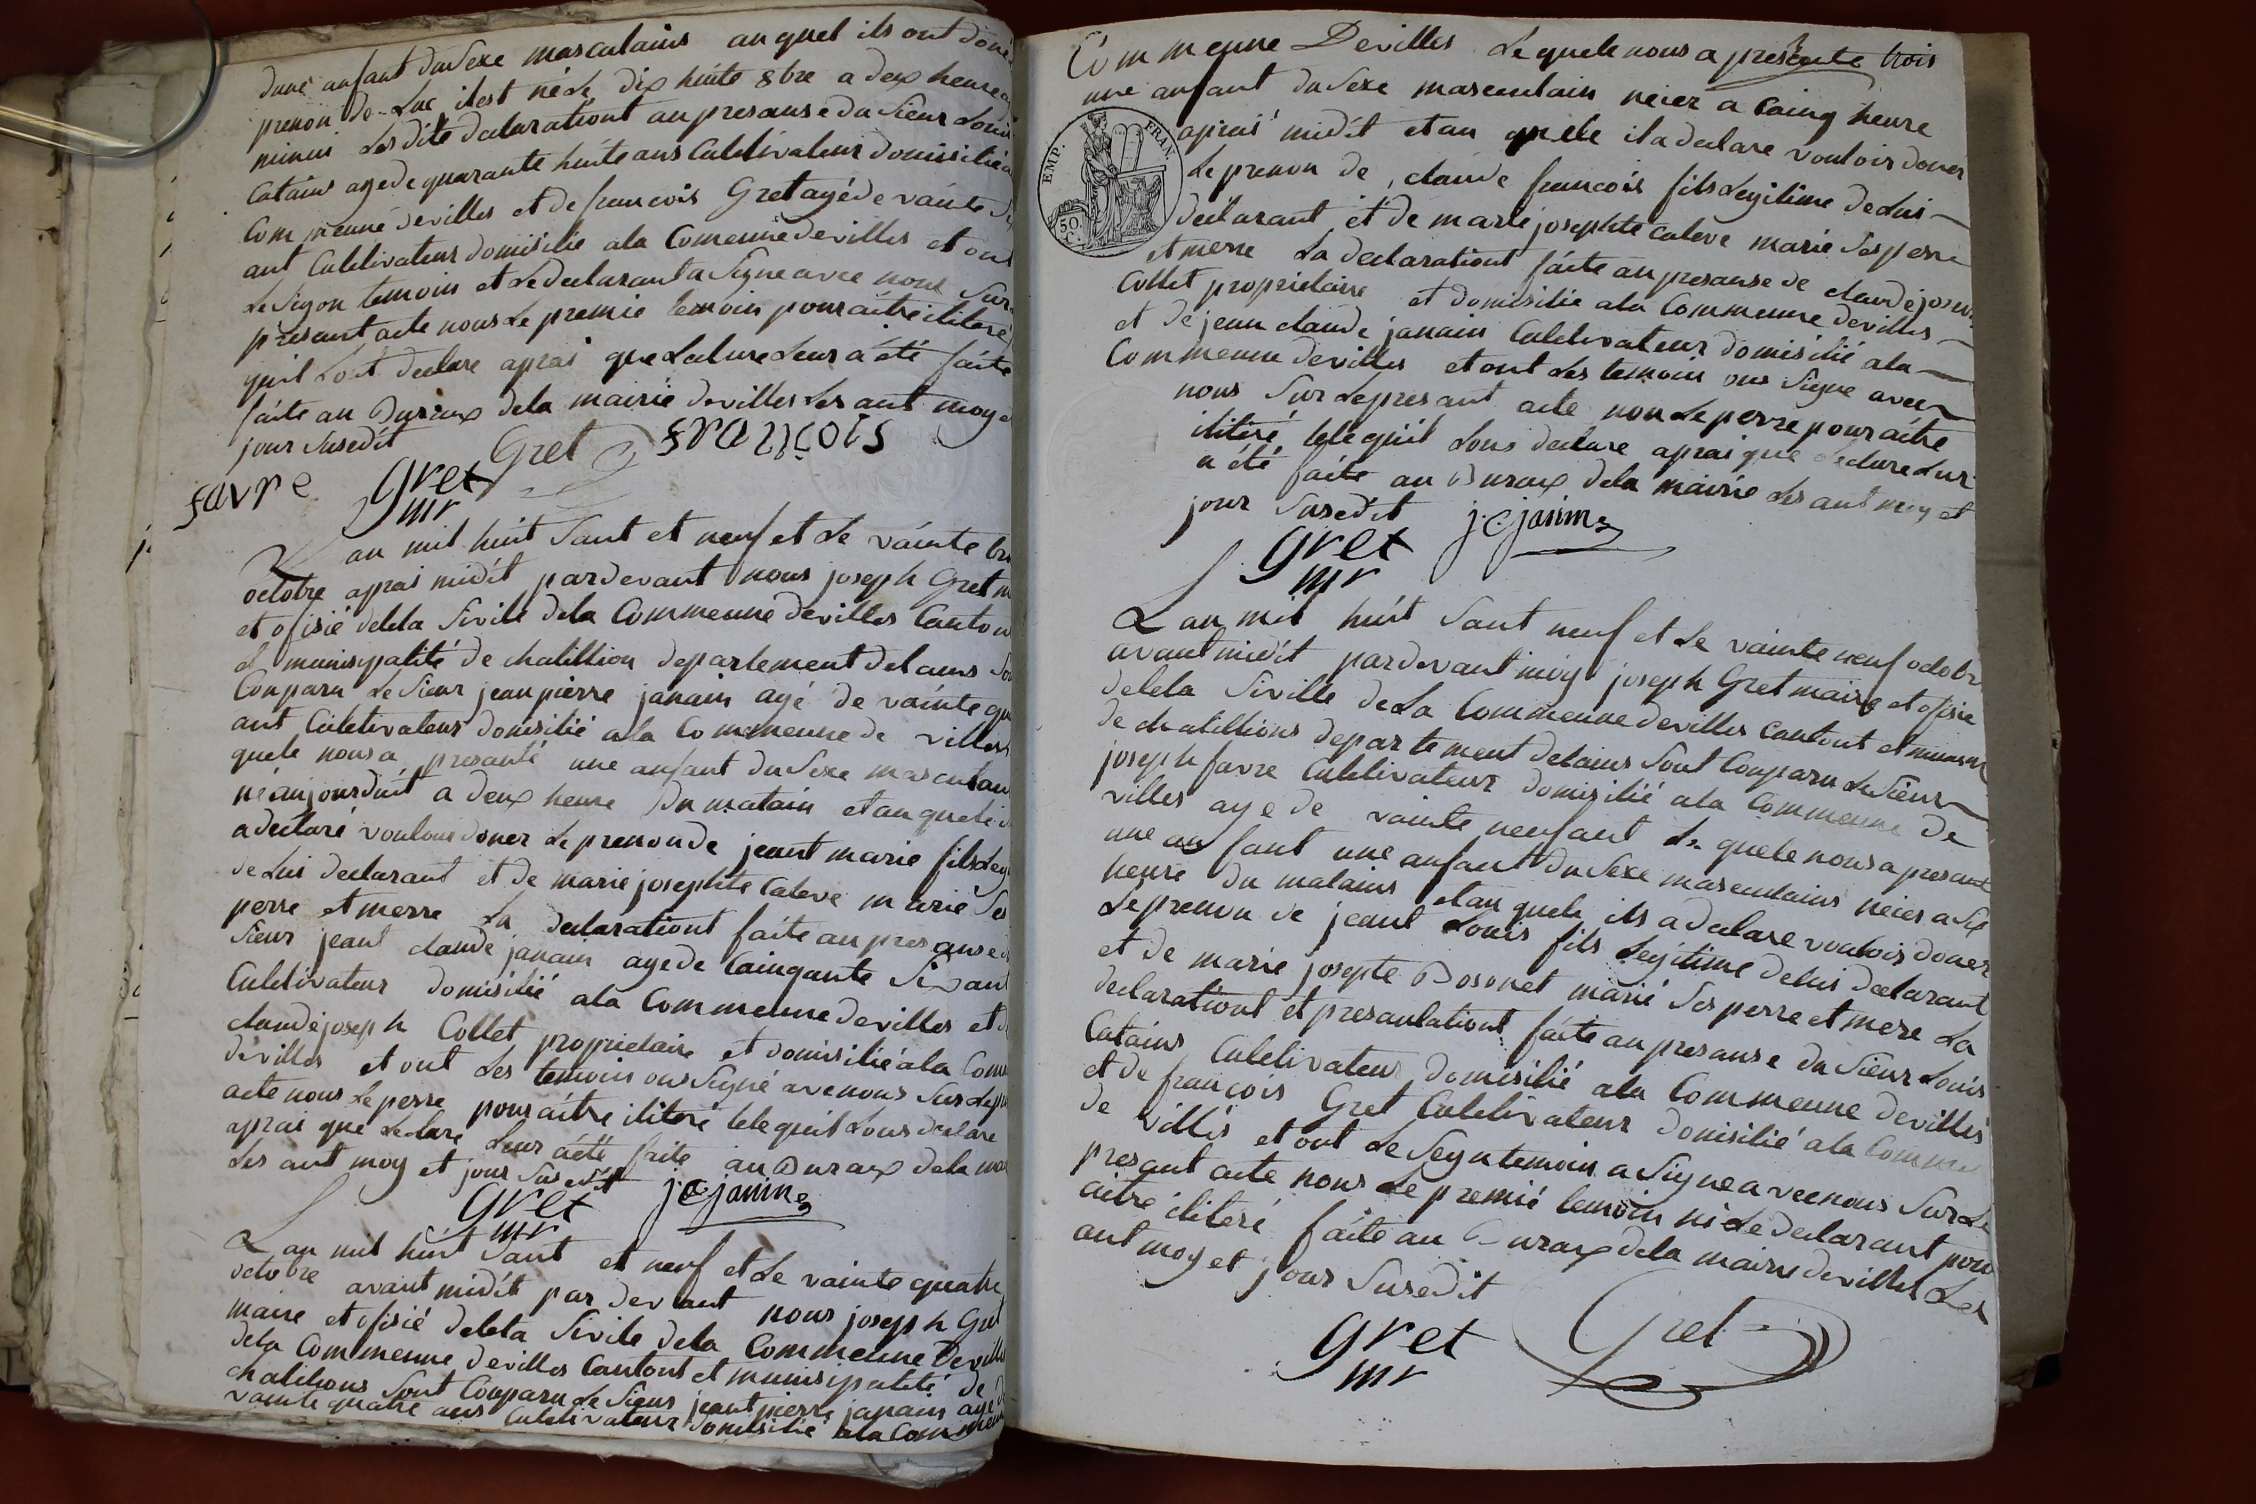 dune anfant du Sexe masculains au quel ils ont done
prenon de Luc ilest né Le dix huite 8bre a deux heure
minui Les dite declarationt au presanse du Sieur Louis
Catains age de quarante huite ans Culetivateur domissilié a
Commeune devilles et de francois Gret agé de vainte
ant Culetivateur domisilie ala Comeune devilles et ont
Le Segon temoin et Le declarant a Signe avec nous Sur
presant acte nous Le premie temoin pour aitre iliteré
quil Lout declare aprai que Lecture Leur a été faite
faite au Buraux dela mairie devilles Les ant moy e
jour Susedit
Gret francois
favre gret
mr
Lan mil huit Sant et neuf et Le vainte
octobre aprai midit pardevant nous joseph Gret m
et ofisié deleta Sivile dela Commeune devilles Canton
et munisipalité de chatillion departement delains
Conparu Le Sieur jean pierre janain agé de vainte
ant Culetivateur domisilié ala Commeune de villes
quele nous a presanté une anfant du Sexe masculain
né aujourduit a deux heure du matain et au quele i
a declaré vouloir doner Le prenon de jeant marie fils Legi
de Lui declarant et de marie josephte Caleve marié Ses
perre et merre La declarationt faite au presanse
Sieur jeant claude janain age de Cainquante Six ant
Culetivateur domisilié ala Commeune devilles et
claude joseph Collet proprietaire et domisilié ala Com
devilles et ont Les temoin ons Signé ave nous Sur Le
acte nous Le perre pour aitre iliteré tele quil Lous declare
aprai que Lecture Leur a été faite au Buraux dela mai
Les ant moy et jour Susedit
gret j:c:janin
mr
Lan mil huit Sant et neuf et Le vainte quatre
octobre avant midit par devant nous joseph Gret
maire et ofisié deleta Sivile dela Commeune devilles
dela Commeune devilles Cantont et munisipalité de
chatilions Sont Conparu Le Sieur jeant pierre janain age
vainte quatre ans Culetivateur domisilié ala Commeun
Commeune Devilles Le quele nous a presente trois
une anfant du Sexe masculain neier a Cainq heure
EMP. FRAN.
50.
C.
aprai midit et au quele il a declare vouloir doner
Le prenon de claude francois fils Legitime de Lui
declarant et de marie josephte Caleve marie Ses perre
et merre La declarationt faite au presanse de claude joseph
Collet proprietaire et domisilié ala Commeune devilles
et de jean claude janain Culetivateur domisilié ala
Commeune devilles et ont Les temoin ons Signe avec
nous Sur Le presant acte nou Le perre pour aitre
iliteré tele quil Lous declare aprai que Lecture Lui
a été faite au Buraux dela mairie Les ant moy et
jour Susedit
gret j:c:janin
mr
Lan mil huit Sant neuf et Le vainte neuf octobr
avant midit pardevant moy joseph Gret maire et ofisie
deleta Siville de La Commeune devilles Cantont et munisi
de chatillions departement delains Sont Conparu Le Sieur
joseph favre Culetivateur domisilié ala Commeune de
villes age de vainte neuf ant Le quele nous a presant
une anfant une anfant du Sexe masculains neier a Six
heure du matains et au quele ils a declare vouloir doner
Le prenon de jeant Louis fils Legitime delui declarant
et de marie josepte Bosonet marié Ses perre et mere La
declarationt et presantationt faite au presanse du Sieur Louis
Catains Culetivateur domisilié ala Commeune devilles
et de francois Gret Culetivateur domisilié ala Comme
de villes et ont Le Segn temoin a Signe avec nous Sur Le
presant acte nous Le premié temoin ni Le declarant pour
aitre iliteré faite au Buraux dela mairie devilles Les
ant moy et jour Susedit
gret Gret
mr